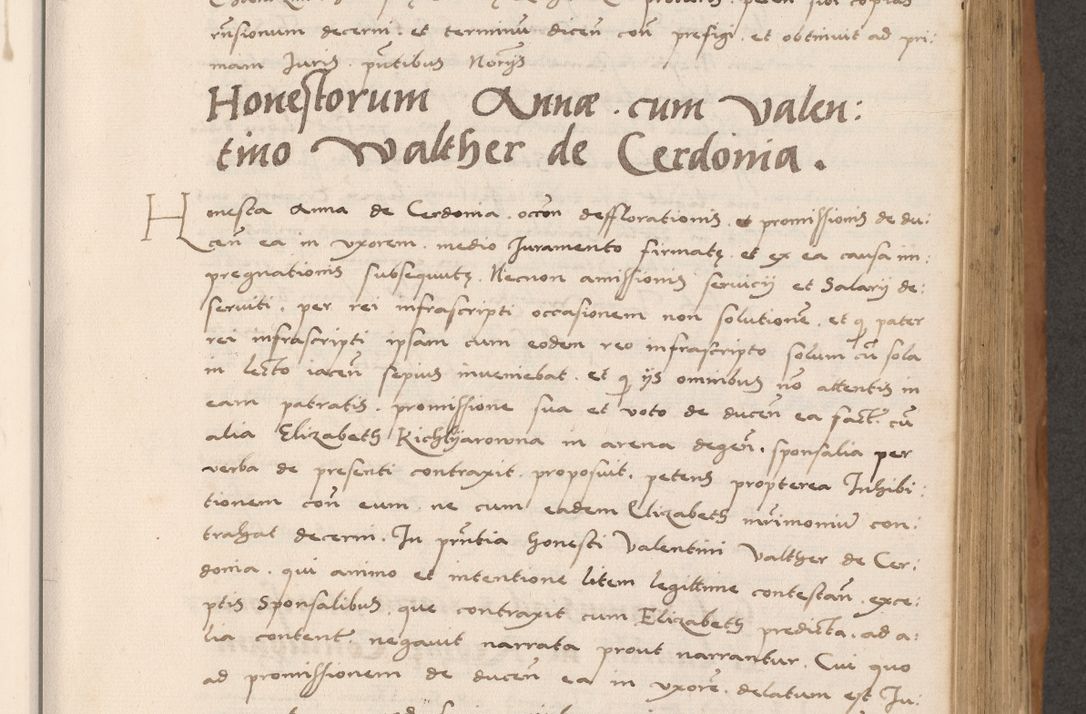 rūsionum decerni et terminū dicen̄ con̄ prefigi et obtinuit ad pri:
mam Juris pn̄tibus Nor̄ijs
Honestorum Annæ cum Valen:
tino Walther de Cerdonia.
Honesta Anna de Cerdonia occōn defflorationis et promissionis de du:
cen̄ ea in vxorem medio Juramento firmatę et ex ea causa im:
pregnationis subsequutę Necnon amissionis servicij et Salarij de:
serviti per rei infrascripti occasionem non solutionē et q̄ pater
rei infrascripti ipsam cum eodem reo infrascripto solum cū sola
in lecto iacen̄ sepius inveniebat et q̄ ijs omnibus nō attentis in
eam patratis promissione sua et voto de ducen̄ ea fact. cū
alia Elizabeth Kichlÿarowna in arena degen̄. sponsalia per
verba de presenti contraxit proposuit petens propterea Inhibi:
tionem con̄ eum ne cum eadem Elizabeth mr̄imoniū con:
trahat decerni. In pn̄tia honesti Valentini Valther de Cer:
donia qui animo et intentione litem legittime contestan̄ exce:
ptis Sponsalibus que contraxit cum Elizabeth predicta ad a:
lia content negavit narrata prout narrantur. Cui quo
ad promissionem de ducen̄ ea in vxorē delatum est Ju: